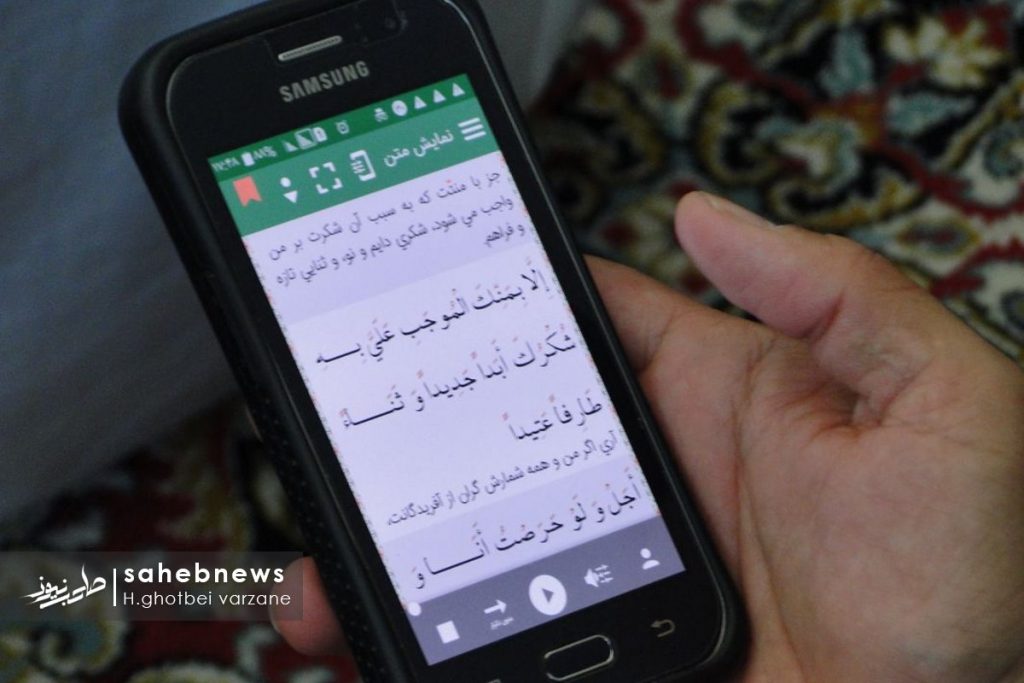 SAMSUNG
۸۸%
نمایش متن
جز با منتّت که به سبب آن شکرت بر من
واجب می شود، شکري دایم و نو، و ثنایي تازه
و فراهم.
إِلَّا بِمَنِّكَ الْمُوجَبِ عَلَيَّ بِـــهِ
شُكْرُكَ أَبَداً جَدِيداً وَ ثَنَـــــاءً
طَارِفاً عَتِيداً
آري اگر من و همه شمارش گران از آفریدگانت،
أَجَلْ وَ لَوْ حَرَصْتُ أَنَــــا وَ
صاحب نیوز
sahebnews
H.ghotbei varzane